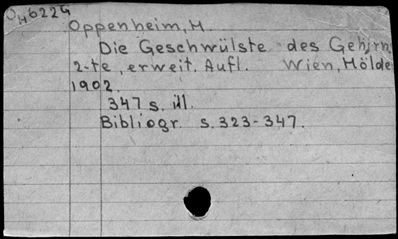 OH6224
Oppenheim, H
Die Geschwülste des Gehirn
2-te, erweit. Aufl. Wien, Hölde
1902.
347 s. ill.
Bibliogr. s. 323-347.